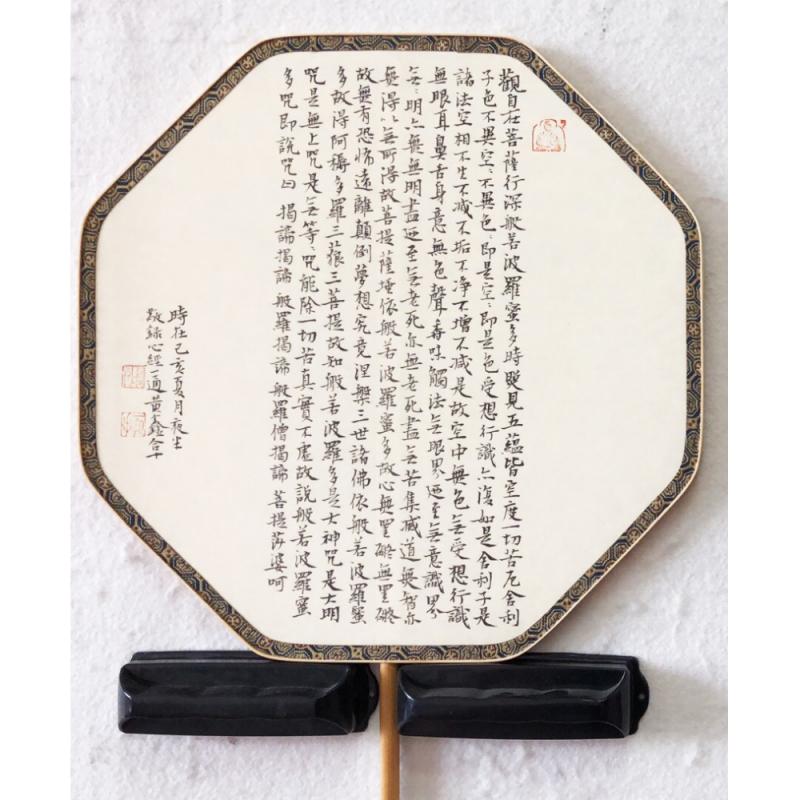 觀自在菩薩行深般若波羅蜜多時照見五蘊皆空度一切苦厄舍利
子色不異空〻不異色〻即是空〻即是色受想行識亦復如是舍利子是
諸法空相不生不滅不垢不净不增不减是故空中無色无受想行識
無眼耳鼻舌身意無色聲香味觸法无眼界迺至无意識界
无〻明亦無無明盡迺至无老死亦無老死盡无苦集滅道無智亦
無得以无所得故菩提薩埵依般若波羅蜜多故心無罣礙無罣礙
故無有恐怖遠離顛倒夢想究竟涅槃三世諸佛依般若波羅蜜
多故得阿耨多羅三藐三菩提故知般若波羅多是大神咒是大明
咒是無上咒是无等〻咒能除一切苦真實不虛故說般若波羅蜜
多咒即說咒曰 揭諦揭諦 般羅揭諦 般羅僧揭諦 菩提莎婆呵
時在己亥夏月夜坐
敬錄心經一通黃鑫